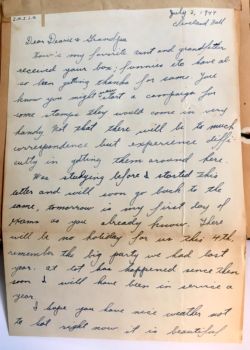 July 2, 1944
Cleveland Hall
Dear Dearie & Grandpa
How's my favorite aunt and grandfather
received your box, funnies etc have al-
so been getting thanks for same. You
know you might even start a campaign for
some stamps they would come in very
handy Not that there will be to much
correspondence but experience diffi-
culty in getting them around here.
Was studying before I started this
letter and will soon go back to the
same, tomorrow is my first day of
exams as you already know. There
will be no holiday for us this 4th.
remember the big party we had last
year. a lot has happened since then
soon I will have been in service a
year.
I hope you have nice weather not
to hot right now it is beautiful